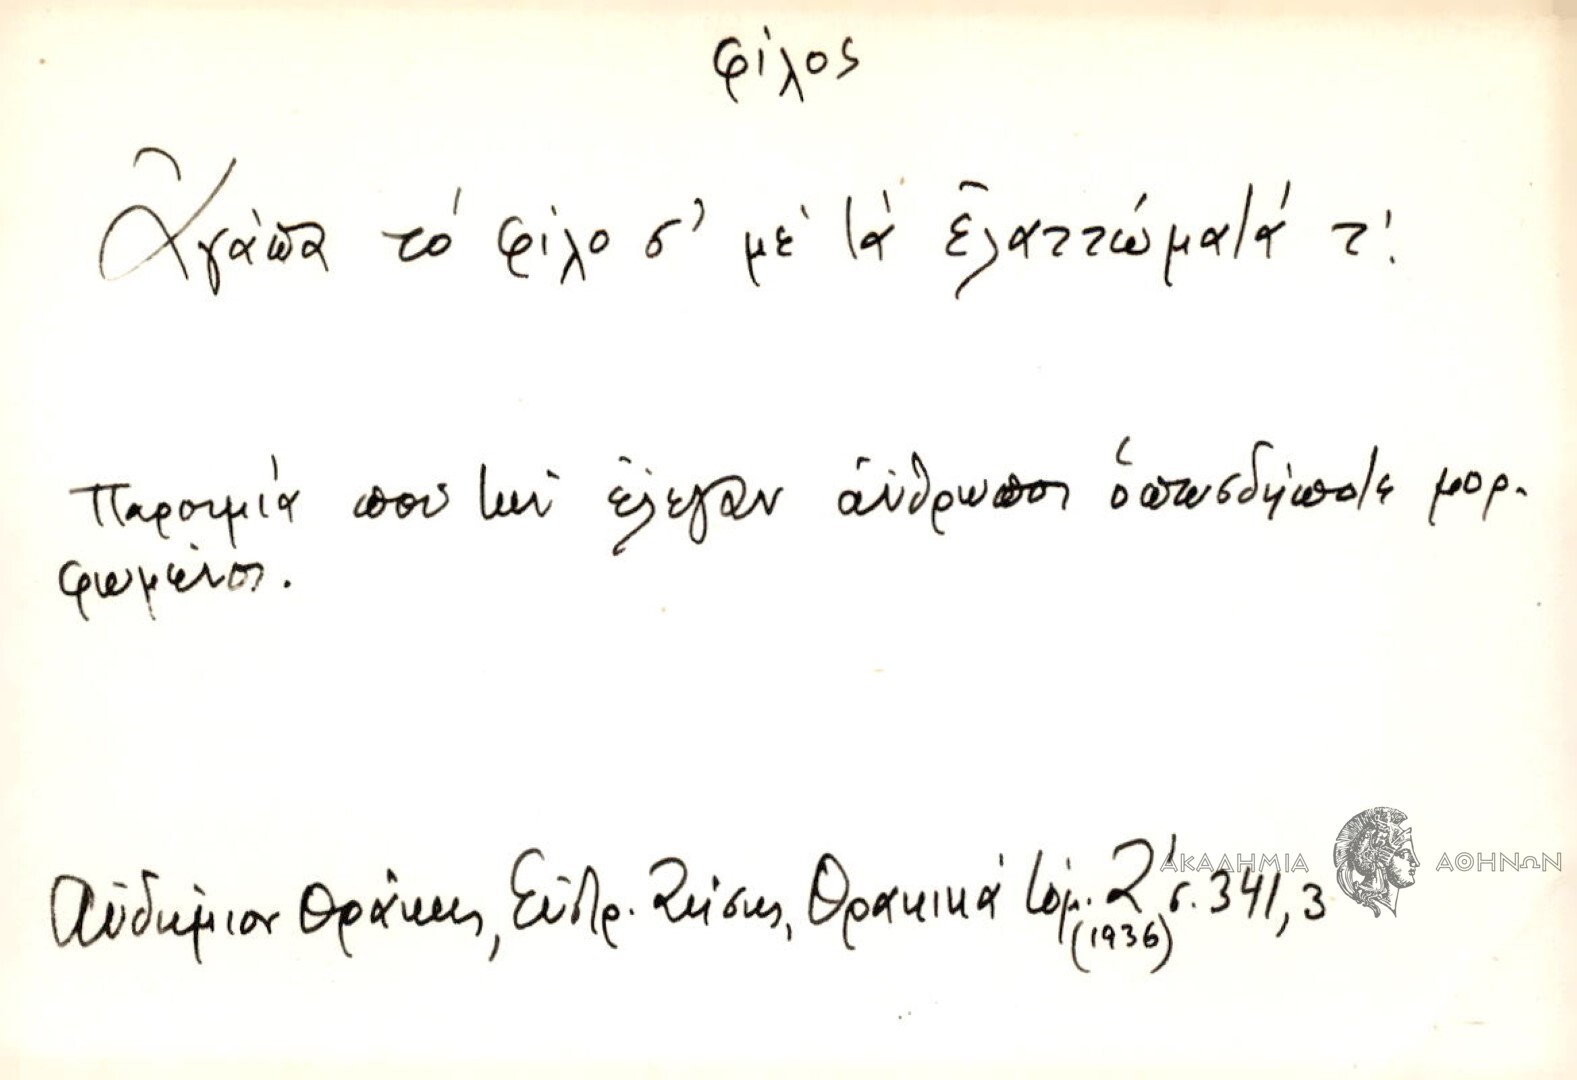 φίλος
Ἀγάπα τό φίλο σ' μέ τά ἐλαττώματά τ'.
Παροιμιά πού τήν ἔλεγαν ἄνθρωποι ὁπωσδήποτε μορ-
φωμένοι.
Αὐδήμιον Θράκης, Εὐστρ. Ζήσης, Θρακικά τόμ. Ζ΄ σ. 341, 3
(1936)
ΑΚΑΔΗΜΙΑ ΑΘΗΝΩΝ